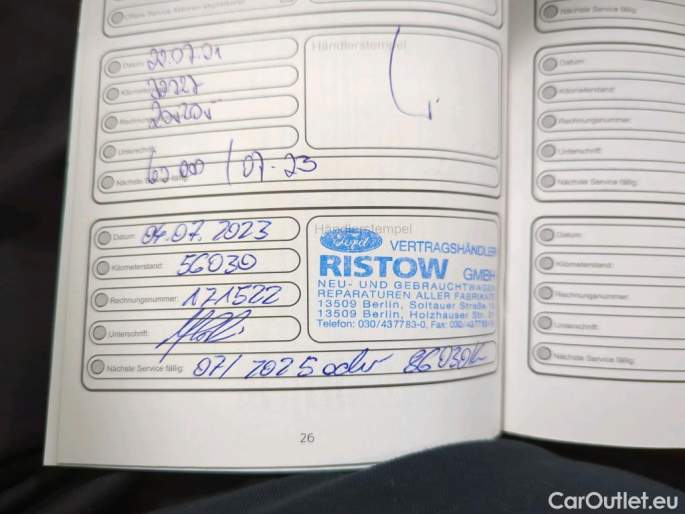 Nächste Service fällig:
Datum: 22.07.21
Händlerstempel
Nächste Service fällig: / 07-23
Datum: 04.07.2023
Händlerstempel
Kilometerstand: 56030
Rechnungsnummer: 171522
Unterschrift:
Nächste Service fällig: 07/2025 oder 86030
Ford VERTRAGSHÄNDLER
RISTOW GMBH
NEU- UND GEBRAUCHTWAGEN
REPARATUREN ALLER FABRIKATE
13509 Berlin, Soltauer Straße
13509 Berlin, Holzhauser Str.
Telefon: 030/437783-0, Fax: 030/437783-
26
Nächste Service fällig:
Datum:
Kilometerstand:
Rechnungsnummer:
Unterschrift:
Nächste Service fällig:
Datum:
Kilometerstand:
Rechnungsnummer:
Unterschrift:
Nächste Service fällig:
CarOutlet.eu